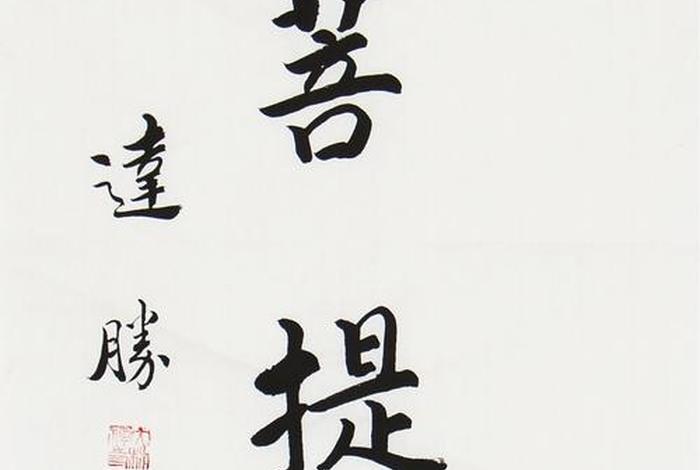 菩提
達勝